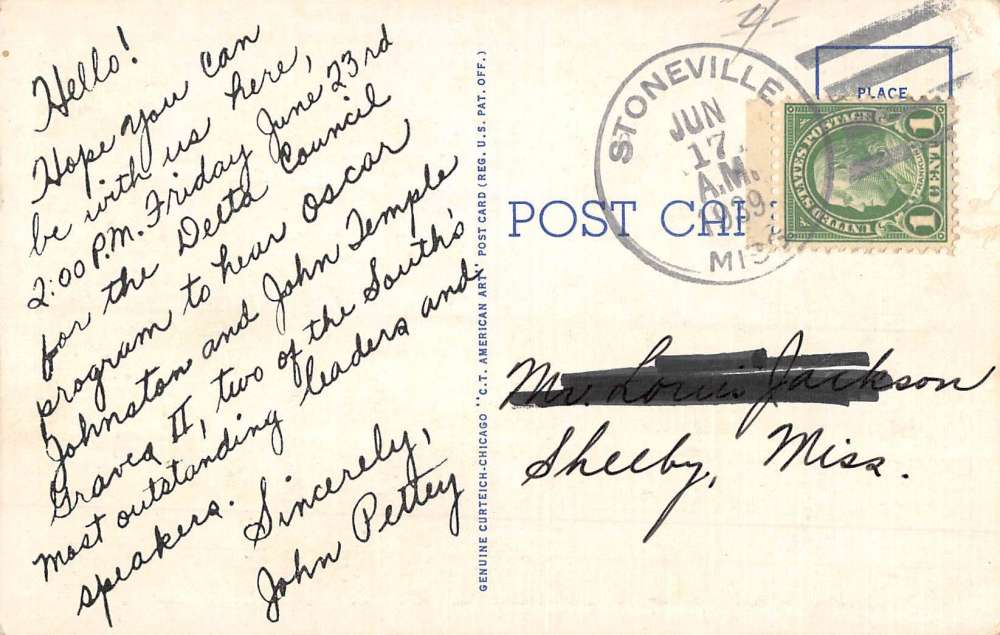 Hello!
Hope you can
be with us here,
2:00 P.M. Friday June 23rd
for the Delta Council
program to hear Oscar
Johnston and John Temple
Graves II, two of the South's
most outstanding leaders and
speakers.
Sincerely,
John Pettey
GENUINE CURTEICH-CHICAGO "C.T. AMERICAN ART" POST CARD (REG. U.S. PAT. OFF.)
STONEVILLE
JUN
17
A.M.
1939
MISS
PLACE
UNITED STATES POSTAGE
1 1
POST CAR
Mr. Louis Jackson
Shelby, Miss.